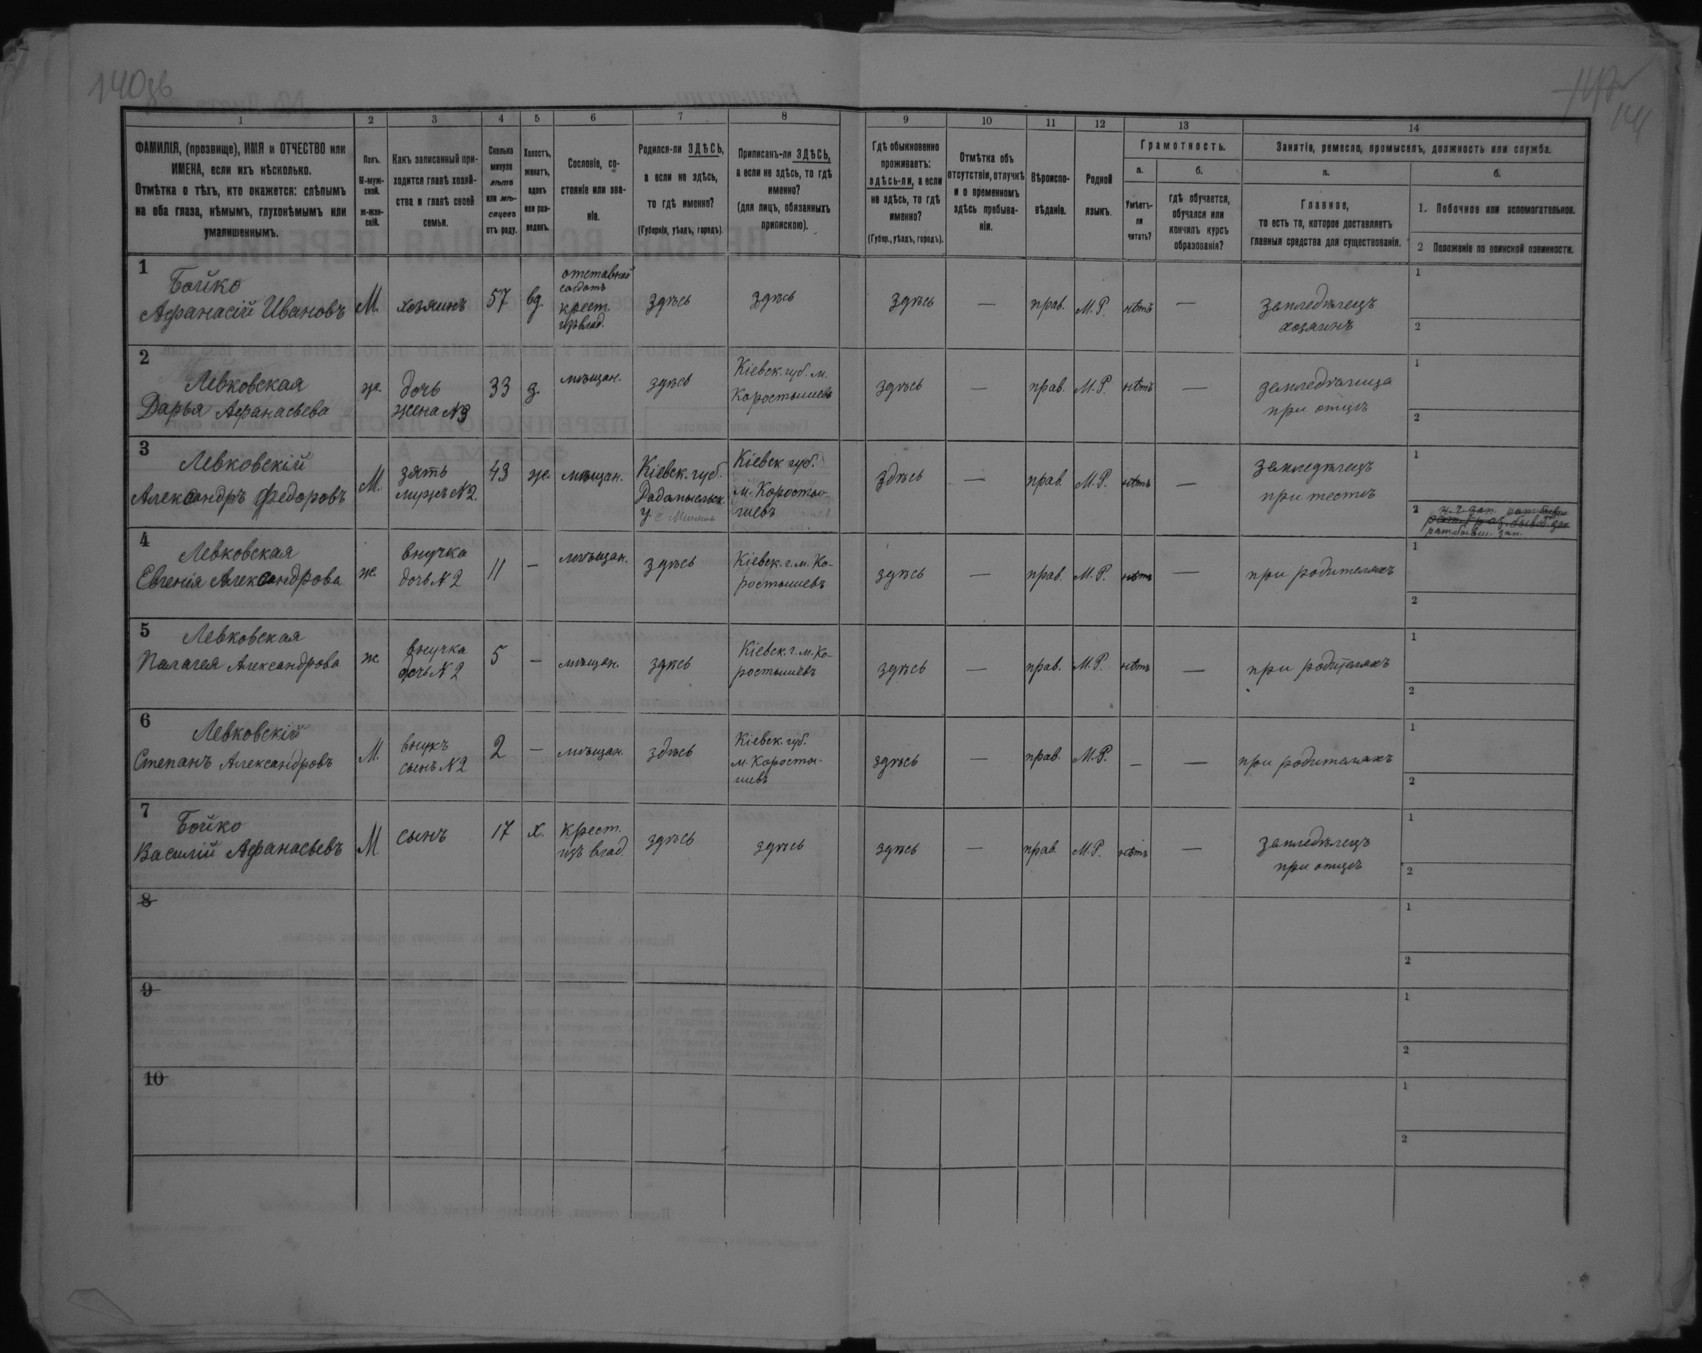 140об
141
1
2
3
4
5
6
7
8
9
10
11
12
13
14
ФАМИЛІЯ, (прозвище), ИМЯ и ОТЧЕСТВО или
ИМЕНА, если ихъ нѣсколько.
Отмѣтка о тѣхъ, кто окажется: слѣпымъ
на оба глаза, нѣмымъ, глухонѣмымъ или
умалишеннымъ.
Полъ.
М-муж-
ской.
ж-жен-
скій.
Какъ записанный при-
ходится главѣ хозяй-
ства и главѣ своей
семьи.
Сколько
минуло
лѣтъ
или мѣ-
сяцевъ
отъ роду.
Холостъ,
женатъ,
вдовъ
или раз-
веденъ.
Сословіе, со-
стояніе или зва-
ніе.
Родился-ли ЗДѢСЬ,
а если не здѣсь,
то гдѣ именно?
(Губернія, уѣздъ, городъ).
Приписанъ-ли ЗДѢСЬ,
а если не здѣсь, то гдѣ
именно?
(для лицъ, обязанныхъ
припискою).
Гдѣ обыкновенно
проживаетъ:
здѣсь-ли, а если
не здѣсь, то гдѣ
именно?
(Губер., уѣздъ, городъ).
Отмѣтка объ
отсутствіи, отлучкѣ
и о временномъ
здѣсь пребыва-
ніи.
Вѣроиспо-
вѣданіе.
Родной
языкъ.
Грамотность.
а.
Умѣетъ-
ли
читать?
б.
гдѣ обучается,
обучался или
кончилъ курсъ
образованія?
Занятіе, ремесло, промыселъ, должность или служба.
а.
Главное,
то есть то, которое доставляетъ
главныя средства для существованія.
б.
1. Побочное или вспомогательное.
2 Положеніе по воинской повинности.
1
Бойко
Афанасій Ивановъ
М.
хозяинъ
57
вд.
отставной
солдатъ
крест.
изъ влад.
здѣсь
здѣсь
здѣсь
—
прав.
М.Р.
нѣтъ
—
земледѣлецъ
хозяинъ
1
2
2
Левковская
Дарья Афанасьева
ж.
дочь
жена №3
33
з.
мѣщан.
здѣсь
Кіевск. губ. м.
Коростышевъ
здѣсь
—
прав.
М.Р.
нѣтъ
—
земледѣлица
при отцѣ
1
2
3
Левковскій
Александръ Федоровъ
М.
зять
мужъ №2
43
же.
мѣщан.
Кіевск. губ.
Радомысльск.
у.
Кіевск губ.
м. Коросты-
шевъ
здѣсь
—
прав.
М.Р.
нѣтъ
—
земледѣлецъ
при тестѣ
1
2
4
Левковская
Евгенія Александрова
ж.
внучка
дочь №2
11
—
мѣщан.
здѣсь
Кіевск. г. м. Ко-
ростышевъ
здѣсь
—
прав.
М.Р.
нѣтъ
—
при родителяхъ
1
2
5
Левковская
Палагея Александрова
ж.
внучка
дочь №2
5
—
мѣщан.
здѣсь
Кіевск. г. м. Ко-
ростышевъ
здѣсь
—
прав.
М.Р.
нѣтъ
—
при родителяхъ
1
2
6
Левковскій
Степанъ Александровъ
М.
внукъ
сынъ №2
2
—
мѣщан.
здѣсь
Кіевск. губ.
м. Коросты-
шевъ
здѣсь
—
прав.
М.Р.
—
—
при родителяхъ
1
2
7
Бойко
Василій Афанасьевъ
М
сынъ
17
х.
крест.
изъ влад.
здѣсь
здѣсь
здѣсь
—
прав.
М.Р.
нѣтъ
—
земледѣлецъ
при отцѣ
1
2
8
1
2
9
1
2
10
1
2